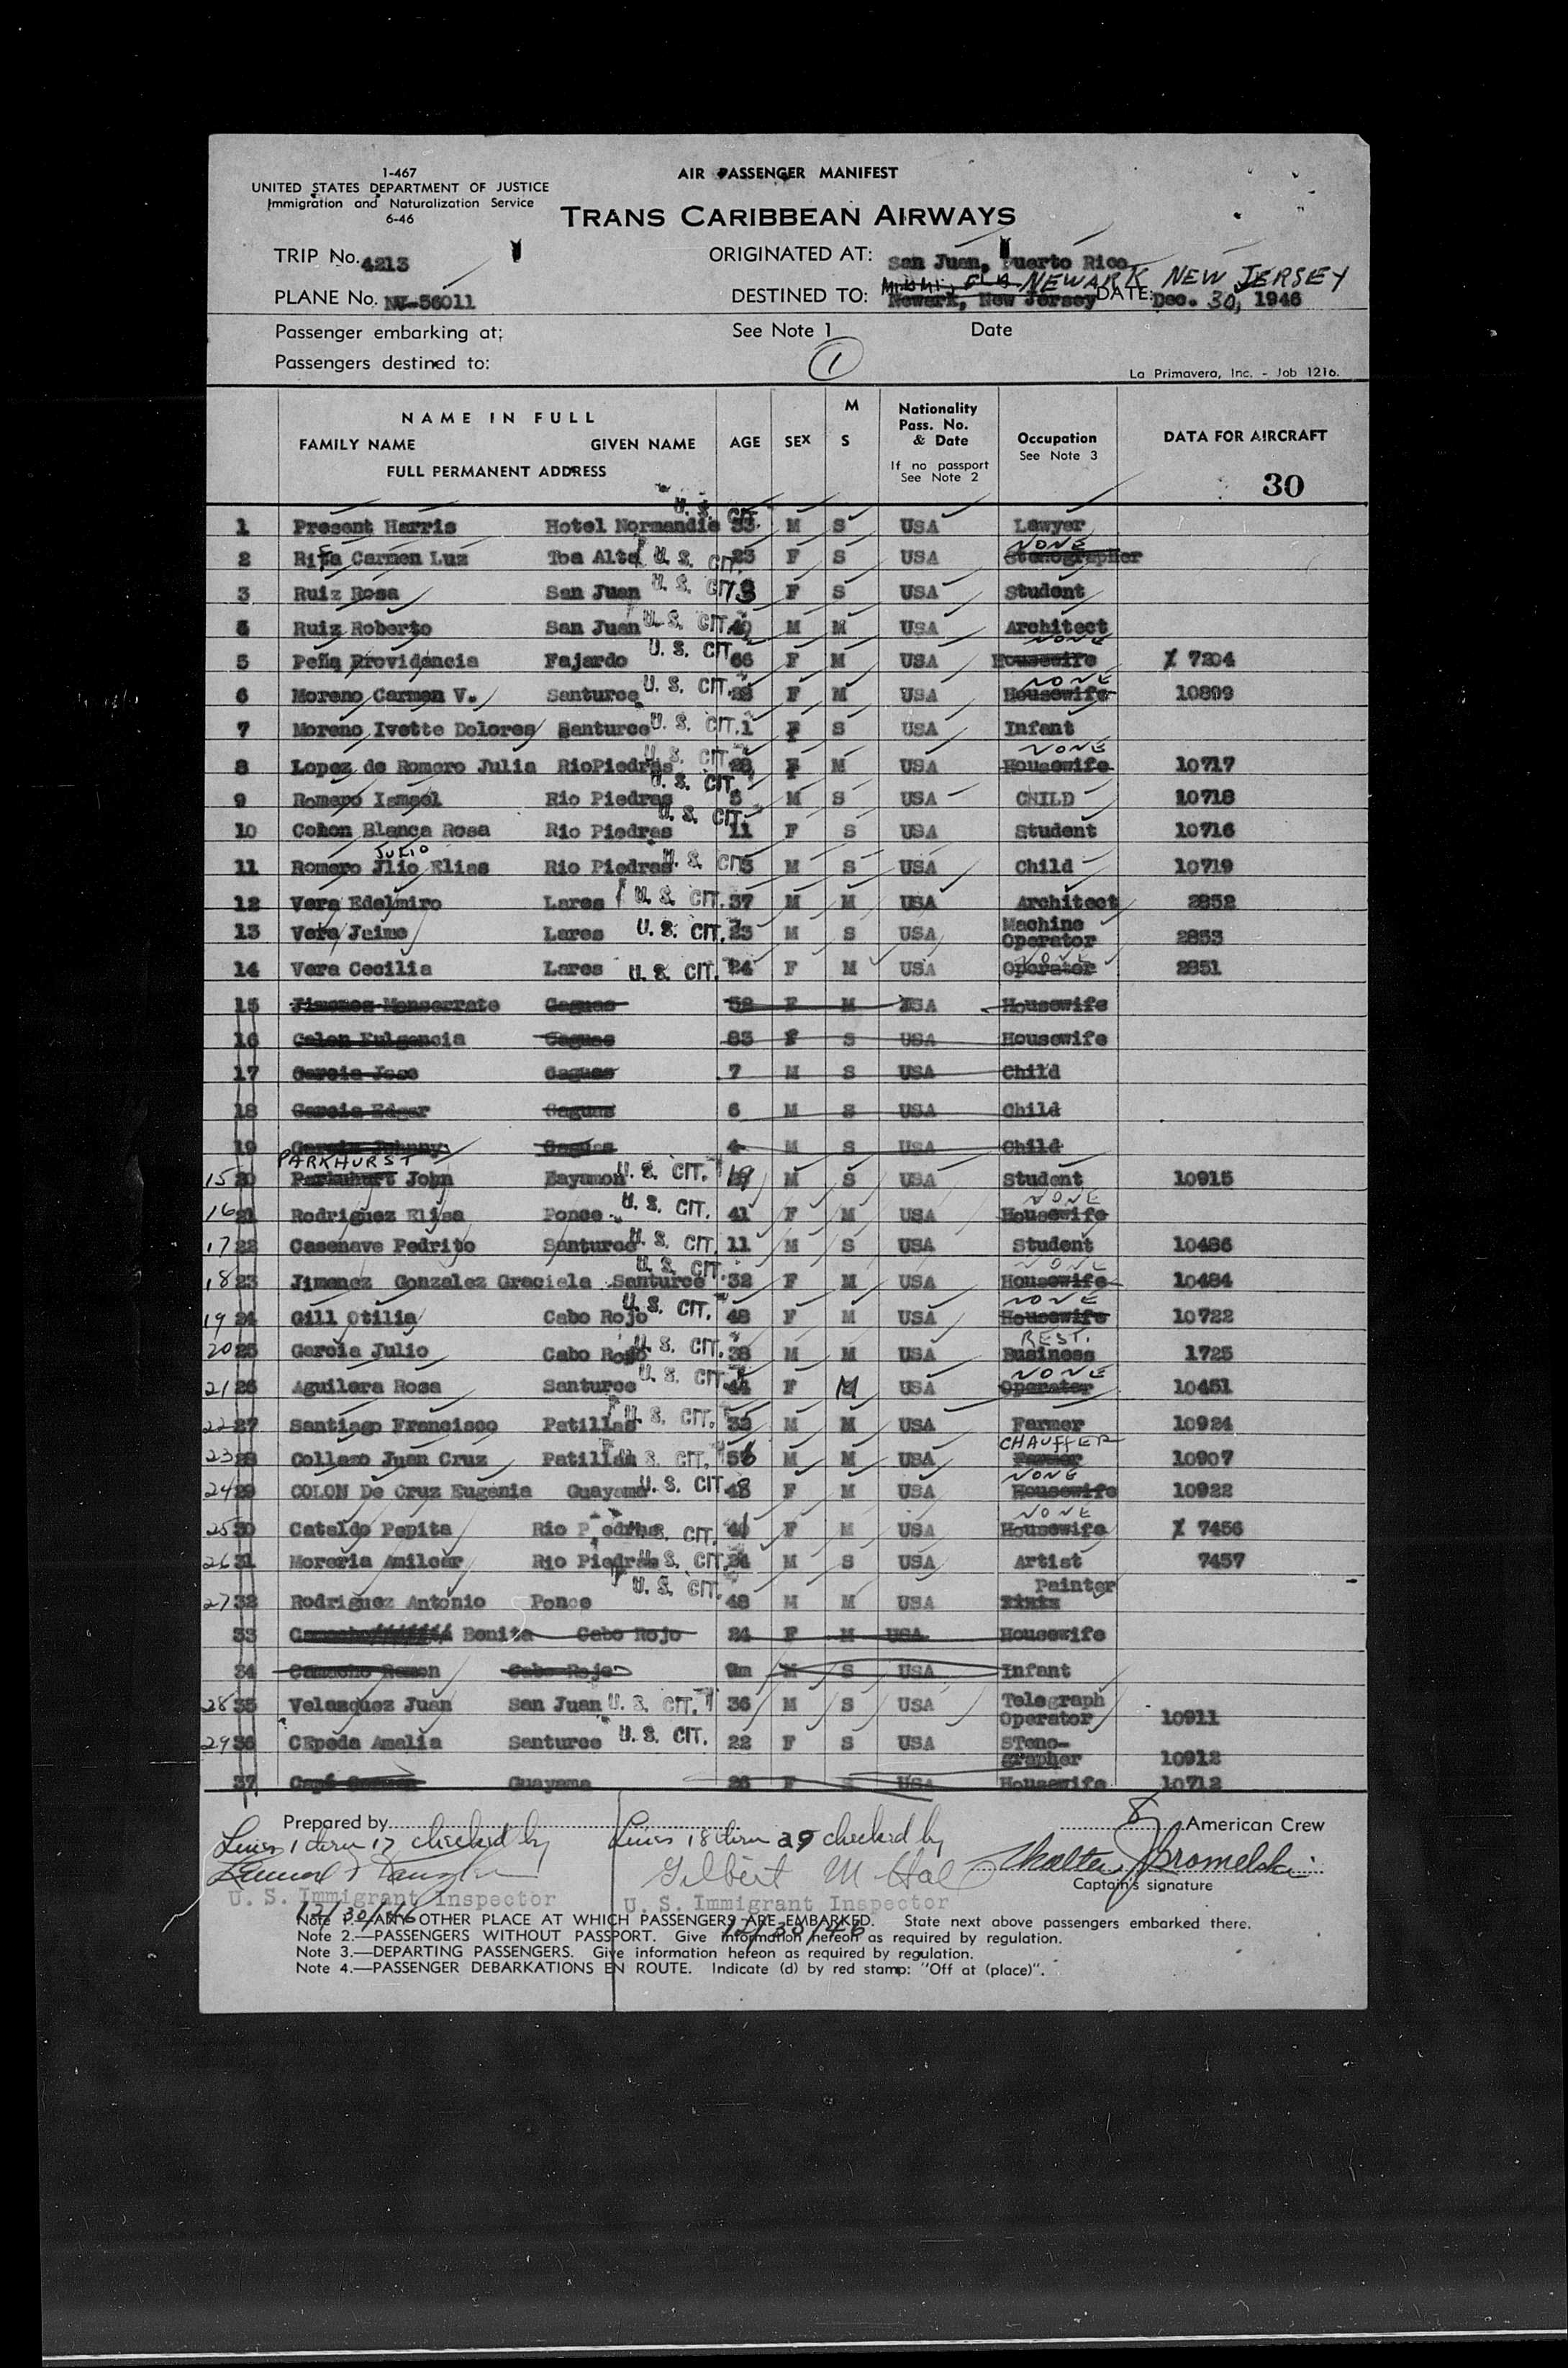 1-467
UNITED STATES DEPARTMENT OF JUSTICE
Immigration and Naturalization Service
6-46
AIR PASSENGER MANIFEST
TRANS CARIBBEAN AIRWAYS
TRIP No. 4213
ORIGINATED AT: San Juan, Puerto Rico
Miami, FLA NEWARK NEW JERSEY
PLANE No. -56011 DESTINED TO: Newark, New Jersey DATE: Dec. 30, 1946
Passenger embarking at: See Note 1 Date
Passengers destined to: 1
La Primavera, Inc. - Job 1216.
NAME IN FULL
FAMILY NAME GIVEN NAME
FULL PERMANENT ADDRESS
AGE
SEX
M
S
Nationality
Pass. No.
& Date
If no passport
See Note 2
Occupation
See Note 3
DATA FOR AIRCRAFT
30
1 Present Harris Hotel Normandie U. S. CIT. 33 M S USA Lawyer
NONE
2 Carmen Luz Toa Alta U. S. CIT. 23 F S USA Stenographer
3 Ruiz Rosa San Juan U. S. CIT. 13 F S USA Student
Ruiz Roberto San Juan U. S. CIT. 40 M M USA Architect
NONE
5 Peña Providencia Fajardo U. S. CIT. 66 F M USA Housewife 7204
NONE
6 Moreno Carmen V. Santurce U. S. CIT. F M USA Housewife 10899
7 Moreno Ivette Dolores Santurce U. S. CIT. 1 F S USA Infant
NONE
8 Lopez de Romero Julia RioPiedras U. S. CIT. 28 F M USA Housewife 10717
9 Romero Ismael Rio Piedras U. S. CIT. 5 M S USA CHILD 10718
10 Cohon Blanca Rosa Rio Piedras U. S. CIT. 11 F S USA Student 10716
JULIO
11 Romero Jlio Elias Rio Piedras U. S. CIT. 3 M S USA Child 10719
12 Vera Edelmiro Lares U. S. CIT. 37 M M USA Architect 2852
13 Vera Jaime Lares U. S. CIT. 23 M S USA Machine Operator 2853
NONE
14 Vera Cecilia Lares U. S. CIT. 24 F M USA Operator 2851
15 Jimenez Monserrate Caguas 52 F M USA Housewife
16 Colon Fulgencia Caguas 83 F S USA Housewife
17 Garcia Jose Caguas 7 M S USA Child
18 Garcia Edgar Caguas 6 M S USA Child
19 Garcia Johnny Caguas 4 M S USA Child
PARKHURST
15 20 Parkuhurt John Bayamon U. S. CIT. 19 M S USA Student 10915
NONE
16 21 Rodriguez Elisa Ponce U. S. CIT. 41 F M USA Housewife
17 22 Casenave Pedrito Santurce U. S. CIT. 11 M S USA Student 10486
NONE
18 23 Jimenez Gonzalez Graciela Santurce U. S. CIT. 32 F M USA Housewife 10484
NONE
19 24 Gill Otilia Cabo Rojo U. S. CIT. 48 F M USA Housewife 10722
REST.
20 25 Garcia Julio Cabo Rojo U. S. CIT. 38 M M USA Business 1725
NONE
21 26 Aguilera Rosa Santurce U. S. CIT. 44 F M USA Operator 10451
22 27 Santiago Francisco Patillas U. S. CIT. 32 M M USA Farmer 10924
CHAUFFER
23 28 Collazo Juan Cruz Patillas U. S. CIT. 56 M M USA Farmer 10907
NONE
24 29 COLON De Cruz Eugenia Guayama U. S. CIT. 48 F M USA Housewife 10922
NONE
25 30 Cataldo Pepita Rio Piedras U. S. CIT. F M USA Housewife 7456
26 31 Moreria Amilcar Rio Piedras U. S. CIT. 24 M S USA Artist 7457
27 32 Rodriguez Antonio Ponce U. S. CIT. 48 M M USA Painter
33 Camacho Benita Cabo Rojo 24 F M USA Housewife
34 Camacho Ramon Cabo Rojo 9m M S USA Infant
28 35 Velazquez Juan San Juan U. S. CIT. 36 M S USA Telegraph Operator 10911
29 36 CEpeda Amalia Santurce U. S. CIT. 22 F S USA STeno-grapher 10912
37 Guayama 26 F USA Housewife 10712
Prepared by
8 American Crew
Lines 1 thru 17 checked by
Lines 18 thru 29 checked by
Gilbert M. Hal
Walter Bromelski
Captain's signature
U. S. Immigrant Inspector
U. S. Immigrant Inspector
12/30/46
12/30/46
Note 1.—ANY OTHER PLACE AT WHICH PASSENGERS ARE EMBARKED. State next above passengers embarked there.
Note 2.—PASSENGERS WITHOUT PASSPORT. Give information hereon as required by regulation.
Note 3.—DEPARTING PASSENGERS. Give information hereon as required by regulation.
Note 4.—PASSENGER DEBARKATIONS EN ROUTE. Indicate (d) by red stamp: "Off at (place)".